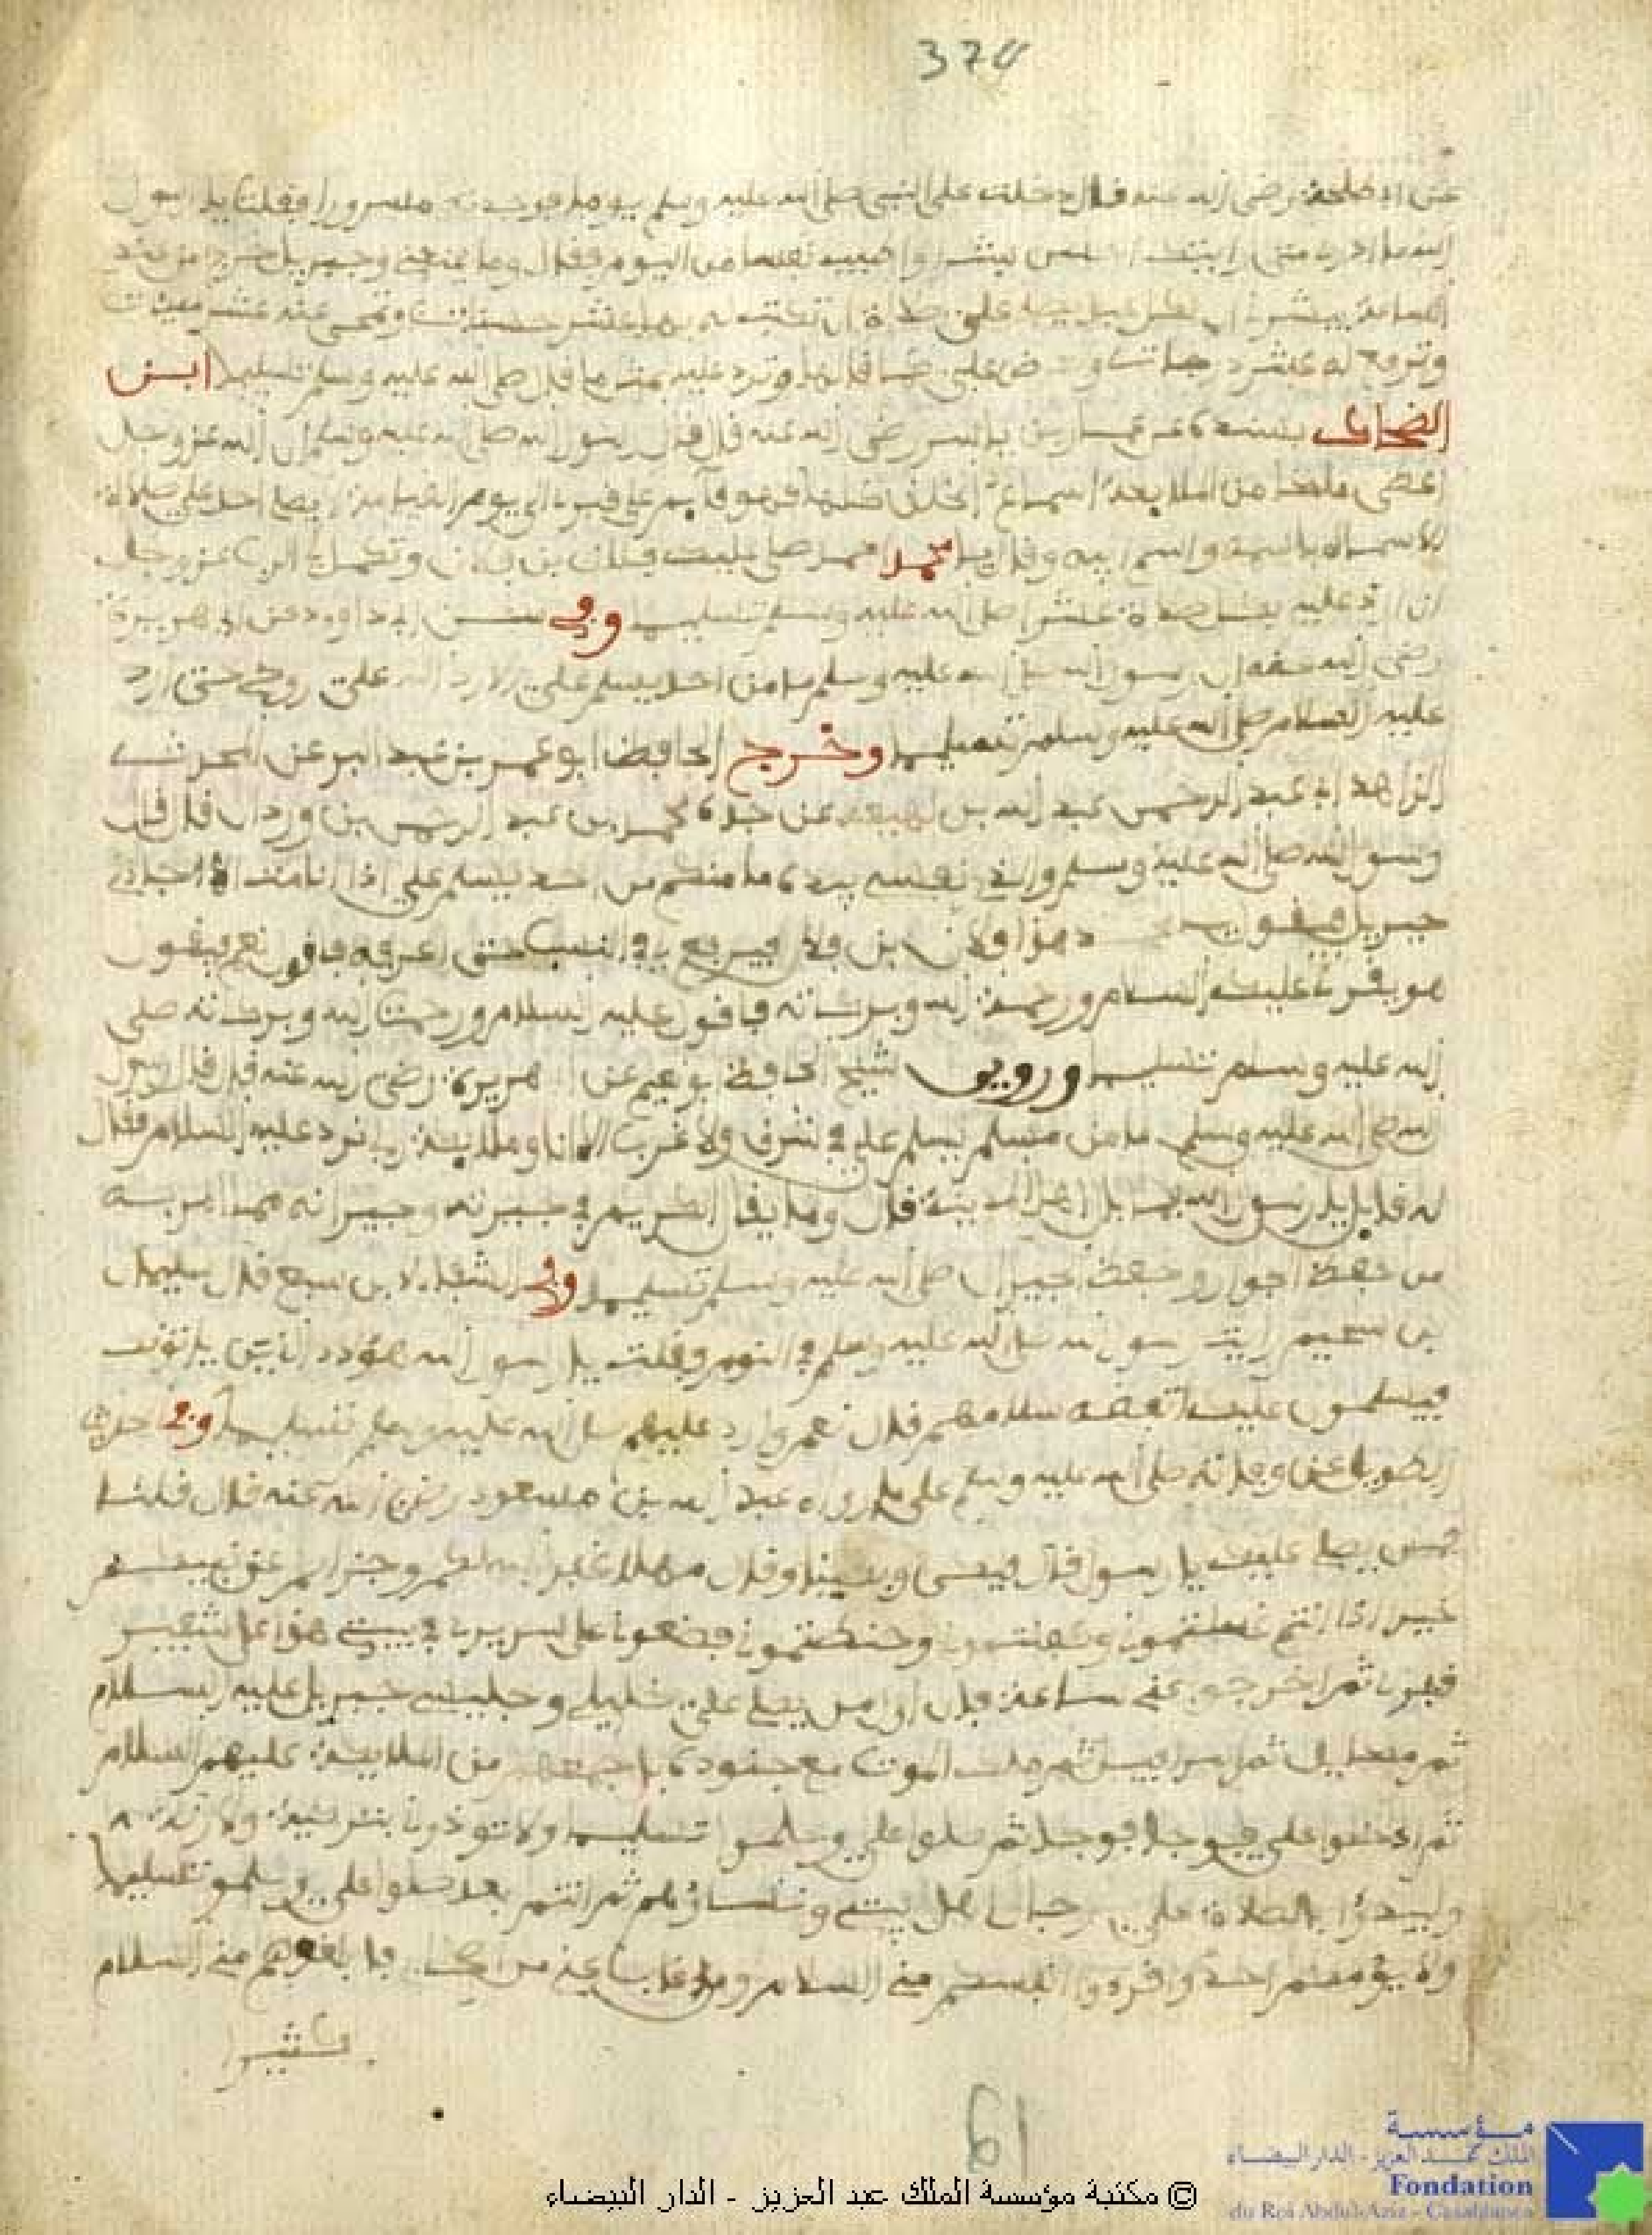 378
عن ابي طلحة رضي الله عنه قال دخلت على النبي صلى الله عليه وسلم يوما فوجدته مسرورا فقلت يا رسول
الله ما ادري متى رايتك احسن بشرا واطيب نفسا من اليوم فقال وما يمنعني وجبريل خرج من عندي
الساعة فبشرني ان لكل عبد يصلي علي صلاة ان تكتب له بها عشر حسنات وتمحى عنه عشر سيئات
وترفع له عشر درجات و علي كما قالها وترد عليه بمثل ما قال صلى الله عليه وسلم تسليما ابن
الضحاك بسنده عن عمار بن ياسر رضي الله عنه قال قال رسول الله صلى الله عليه وسلم ان الله عز وجل
اعطى ملكا من الملايكة اسماع الخلق كلها فهو قايم على قبري الى يوم القيامة لا يصلي احد علي صلاة
الا سماه باسمه واسم ابيه وقال يا محمد صلى عليك فلان بن فلان وتكفل لي الرب عز وجل
ان ارد عليه بكل صلاة عشرا صلى الله عليه وسلم تسليما وفي سنن ابي داوود عن ابي هريرة
رضي الله عنه ان رسول الله صلى الله عليه وسلم ما من احد يسلم علي الا رد الله علي روحي حتى ارد
عليه السلام صلى الله عليه وسلم تسليما وخرج الحافظ ابو عمر بن عبد البر عن
الزاهد ابي عبد الرحمن عبد الله بن عن جده محمد بن عبد الرحمن بن وردان قال قال
رسول الله صلى الله عليه وسلم والذي نفسي بيده ما منكم من احد يسلم علي اذا انا مت الا جاءني
جبريل فيقول يا محمد هذا فلان بن فلان فيرفع لي في النسب حتى اعرفه فاقول نعم فيقول
هو يقرئك عليك السلام ورحمة الله وبركاته فاقول عليه السلام ورحمت الله وبركاته صلى
الله عليه وسلم تسليما وروى الشيخ الحافظ ابو نعيم عن ابي هريرة رضي الله عنه قال قال رسول
الله صلى الله عليه وسلم ما من مسلم يسلم علي في شرق ولا غرب الا انا وملايكة ربي نرد عليه السلام فقال
له قايل يا رسول الله فما بال اهل المدينة قال وما يقال لكريم في جيرته وجيرانه مما امر به
من حفظ الجوار وحفظ الجيران صلى الله عليه وسلم تسليما وفي الشفاء لابن سبع قال سليمان
بن سحيم رايت رسول الله صلى الله عليه وسلم في النوم فقلت يا رسول الله هؤلاء الذين ياتونك
فيسلمون عليك اتفقه سلامهم قال نعم وارد عليهم صلى الله عليه وسلم تسليما وفي حديث
الطويل عن وفاته صلى الله عليه وسلم على ما رواه عبد الله بن مسعود رضي الله عنه قال قلنا
فمن يصلي عليك يا رسول الله فبكى وبكينا وقال مهلا غفر الله لكم وجزاكم عن نبيكم
خيرا اذا انتم غسلتموني وكفنتموني وحنطتموني فضعوني على سريري في بيتي هذا على شفير
قبري ثم اخرجوا عني ساعة فان اول من يصلي علي خليلي وجليسي جبريل عليه السلام
ثم ميكاييل ثم اسرافيل ثم ملك الموت مع جنوده باجمعهم من الملايكة عليهم السلام
ثم ادخلوا علي فوجا فوجا ثم صلوا علي وسلموا تسليما ولا توذوني بتزكية ولا رنة
وليبدؤا بالصلاة علي رجال اهل بيتي ونساؤهم ثم انتم بعد صلوا علي وسلموا تسليما
ولا يؤمكم احد واقرؤا انفسكم مني السلام وما غاب عني من اصحابي فابلغوهم مني السلام
كثيرا
© مكتبة مؤسسة الملك عبد العزيز - الدار البيضاء
مؤسسة
الملك عبد العزيز - الدار البيضاء
Fondation
du Roi Abdul-Aziz - Casablanca